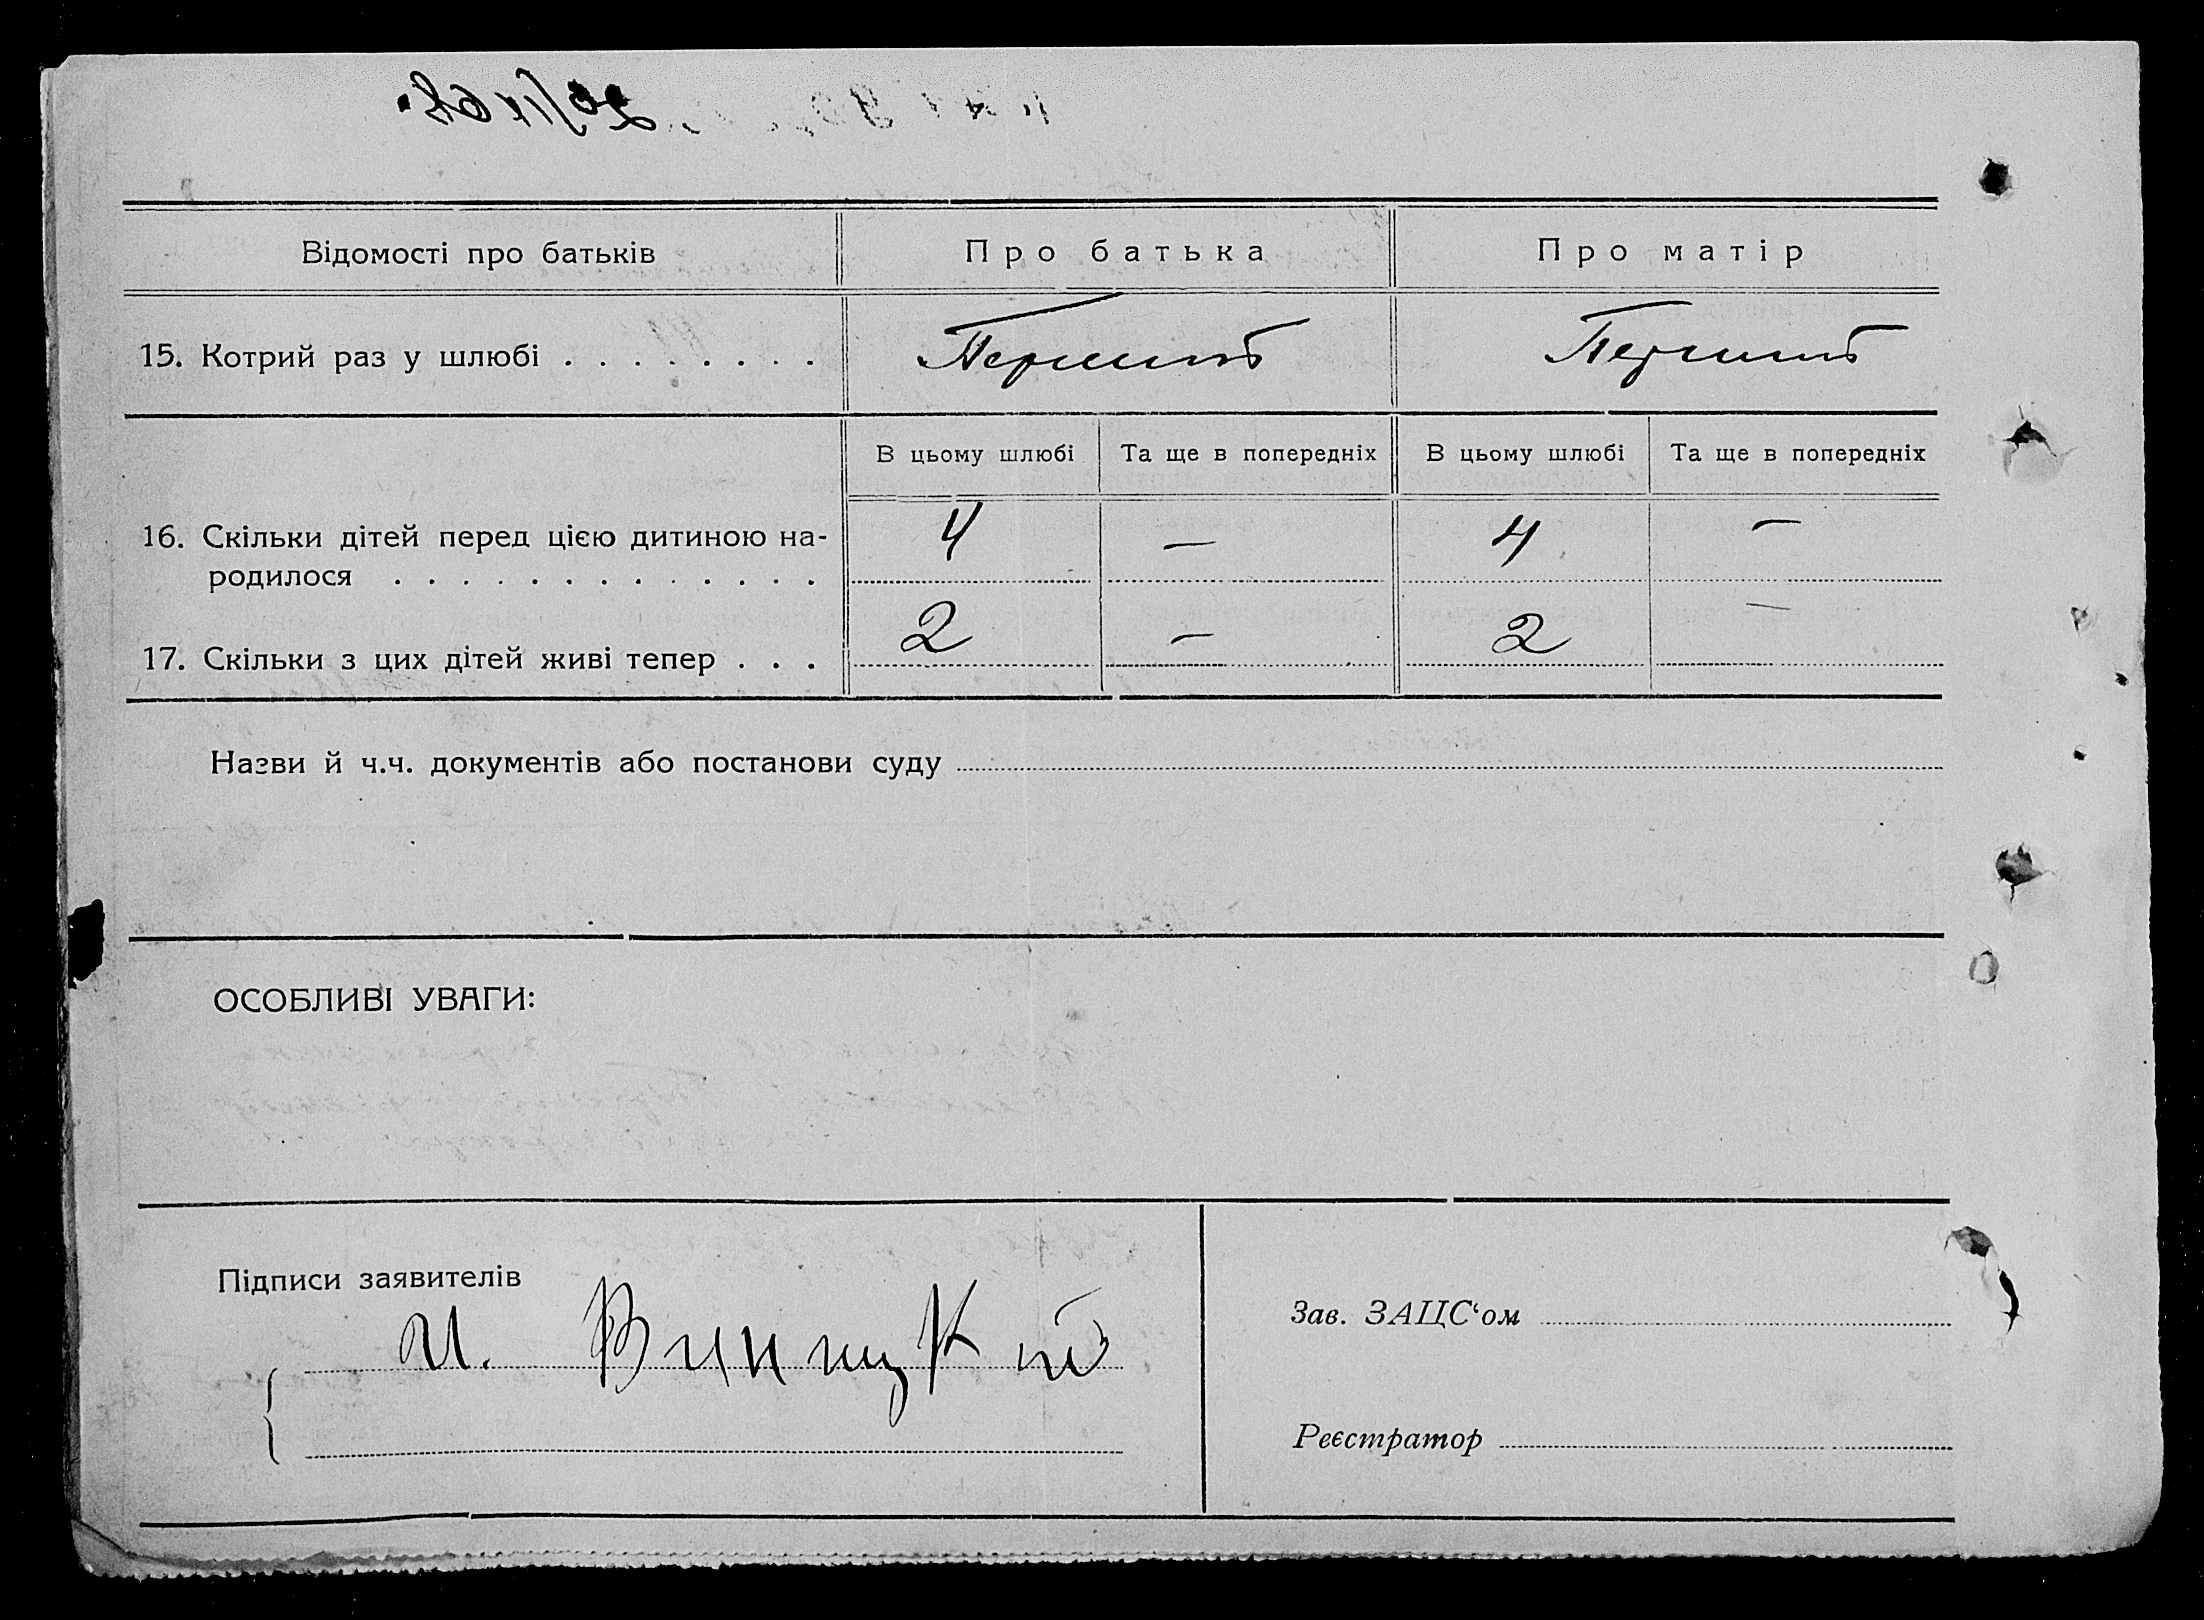 Відомості про батьків
Про батька
Про матір
15. Котрий раз у шлюбі . . . . . . . .
Перший
Перший
В цьому шлюбі
Та ще в попередніх
В цьому шлюбі
Та ще в попередніх
16. Скільки дітей перед цією дитиною на-
родилося . . . . . . . . . . . . . .
4
—
4
—
17. Скільки з цих дітей живі тепер . . .
2
—
2
—
Назви й ч.ч. документів або постанови суду
ОСОБЛИВІ УВАГИ:
Підписи заявителів
И. Виницкий
Зав. ЗАЦС‘ом
Реєстратор